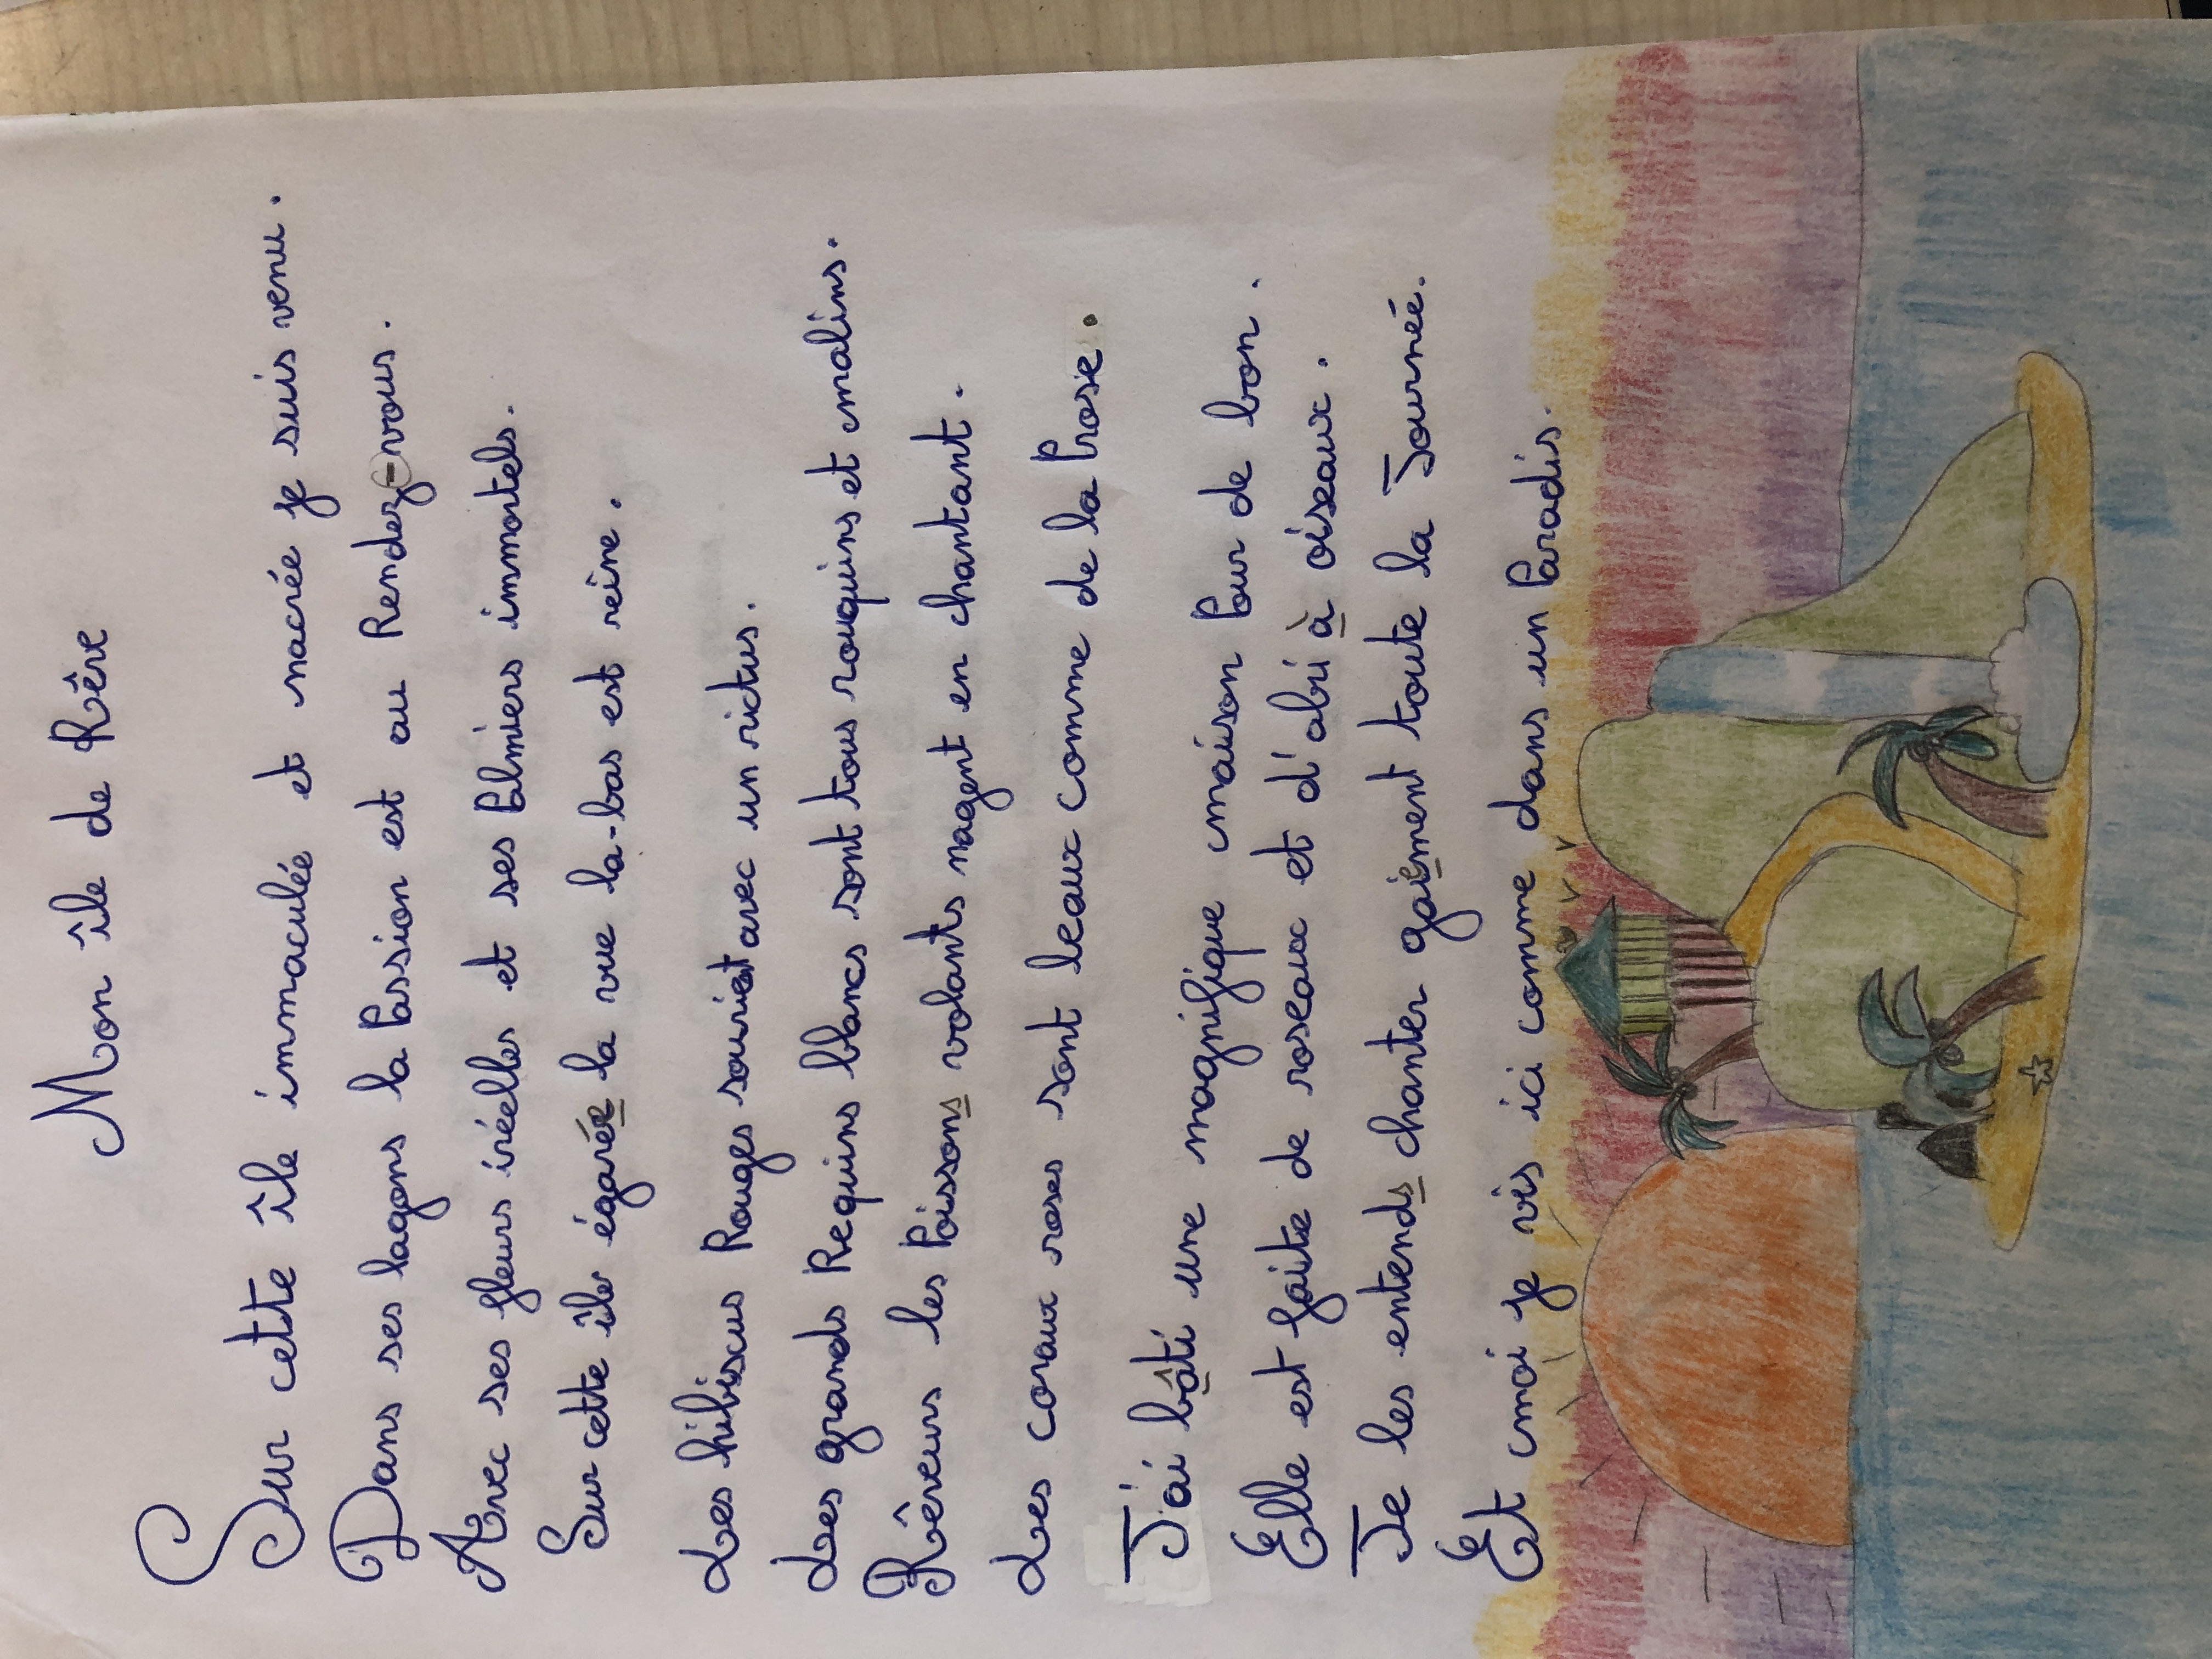 Mon île de Rêve
Sur cette île immaculée et nacrée je suis venu.
Dans ses lagons la Passion est au Rendez-vous.
Avec ses fleurs iréelles et ses Palmiers immortels.
Sur cette île égarée la vue la-bas est reine.
Les hibiscus Rouges sourient avec un rictus.
Les grands Requins blancs sont tous rouquins et malins.
Rêveurs les Poissons volants nagent en chantant.
Les coraux roses sont beaux comme de la Prose.
J'ai bâti une magnifique maison Pour de bon.
Elle est faite de roseaux et d'abri à oiseaux.
Je les entends chanter gaiement toute la Journée.
Et moi je vis ici comme dans un Paradis.